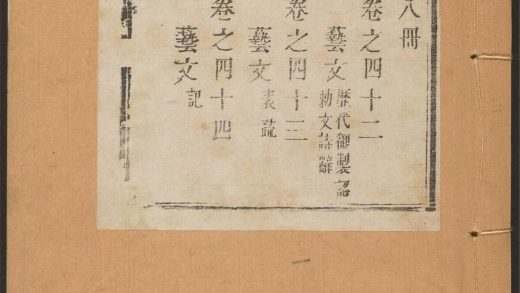 八冊
卷之四十二
藝文 歷代御製詔
勅文詩辭
卷之四十三
藝文 表䟽
卷之四十四
藝文 記